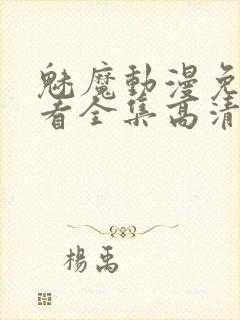 魅魔動漫免
看全集高清
楊禹